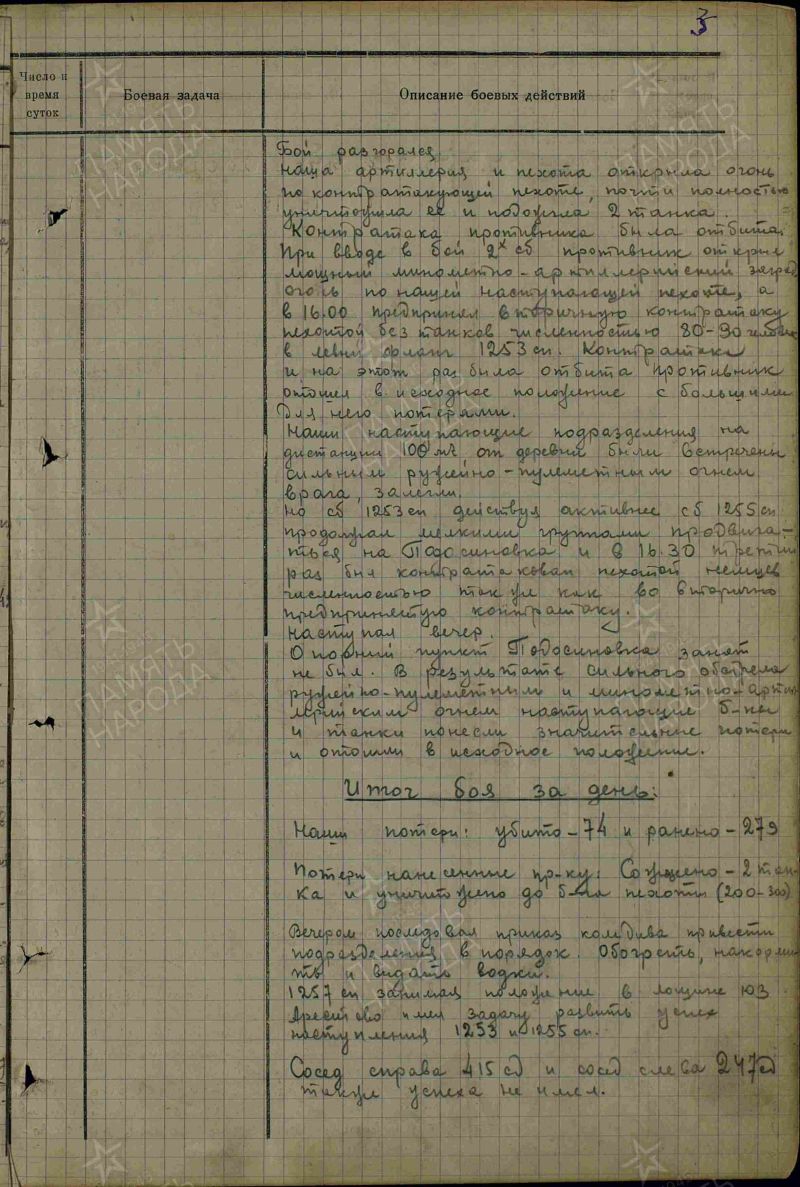 3
Число и
время
суток
Боевая задача
Описание боевых действий
Бой разгорался.
Наша артиллерия и пехота открыла огонь
по контратакующей пехоте, почти полностью
уничтожила ее и подожгла 2 танка.
Контратака противника была отбита.
При вводе в бой 2х сб противник открыл
мощный минометно-артиллерийский заград
огонь по нашей наступающей пехоте, а
в 16.00 предпринял вторичную контратаку
пехотой без танков численностью 80-90 человек
в левый фланг 1253 сп. Контратака
и на этот раз была отбита противник
отошел в исходное положение с большими
для него потерями.
Наши наступающие подразделения на
дистанции 100 мт. от деревни были встречены
сильным ружейно-пулеметным огнем
врага, залегли.
Но сб 1253 сп действуя активнее сб 1255 сп
продолжал мелкими группами продвига-
ться на Подосиновка и в 16.30 третий
раз был контратакован пехотой немцев
численностью так же как во вторично
предпринятую контратаку.
Наступал вечер.
Опорный пункт Подосиновка занят
не был. В результате сильного обстрела
ружейно-пулеметным и минометно-артил
лерийским огнем наступающие б-ны
и танки понесли значительные потери
и отошли в исходное положение.
Итог боя за день:
Наши потери: убито-74 и ранено-279
Потери нанесенные пр-ку: Сожжено-2 тан-
ка и уничтожено до б-на пехоты (200-300)
Вечером последовал приказ комдива привести
подразделения в порядок. Обогреть, накорми
ть и выдать водки.
1257 сп занимая положение в лощине ЮЗ
имел задачу развить успех
наступления 1253 и 1255 сп.
Сосед справа 415 сд и сосед слева 247 сд
также успеха не имел.
ПАМЯТЬ
НАРОДА